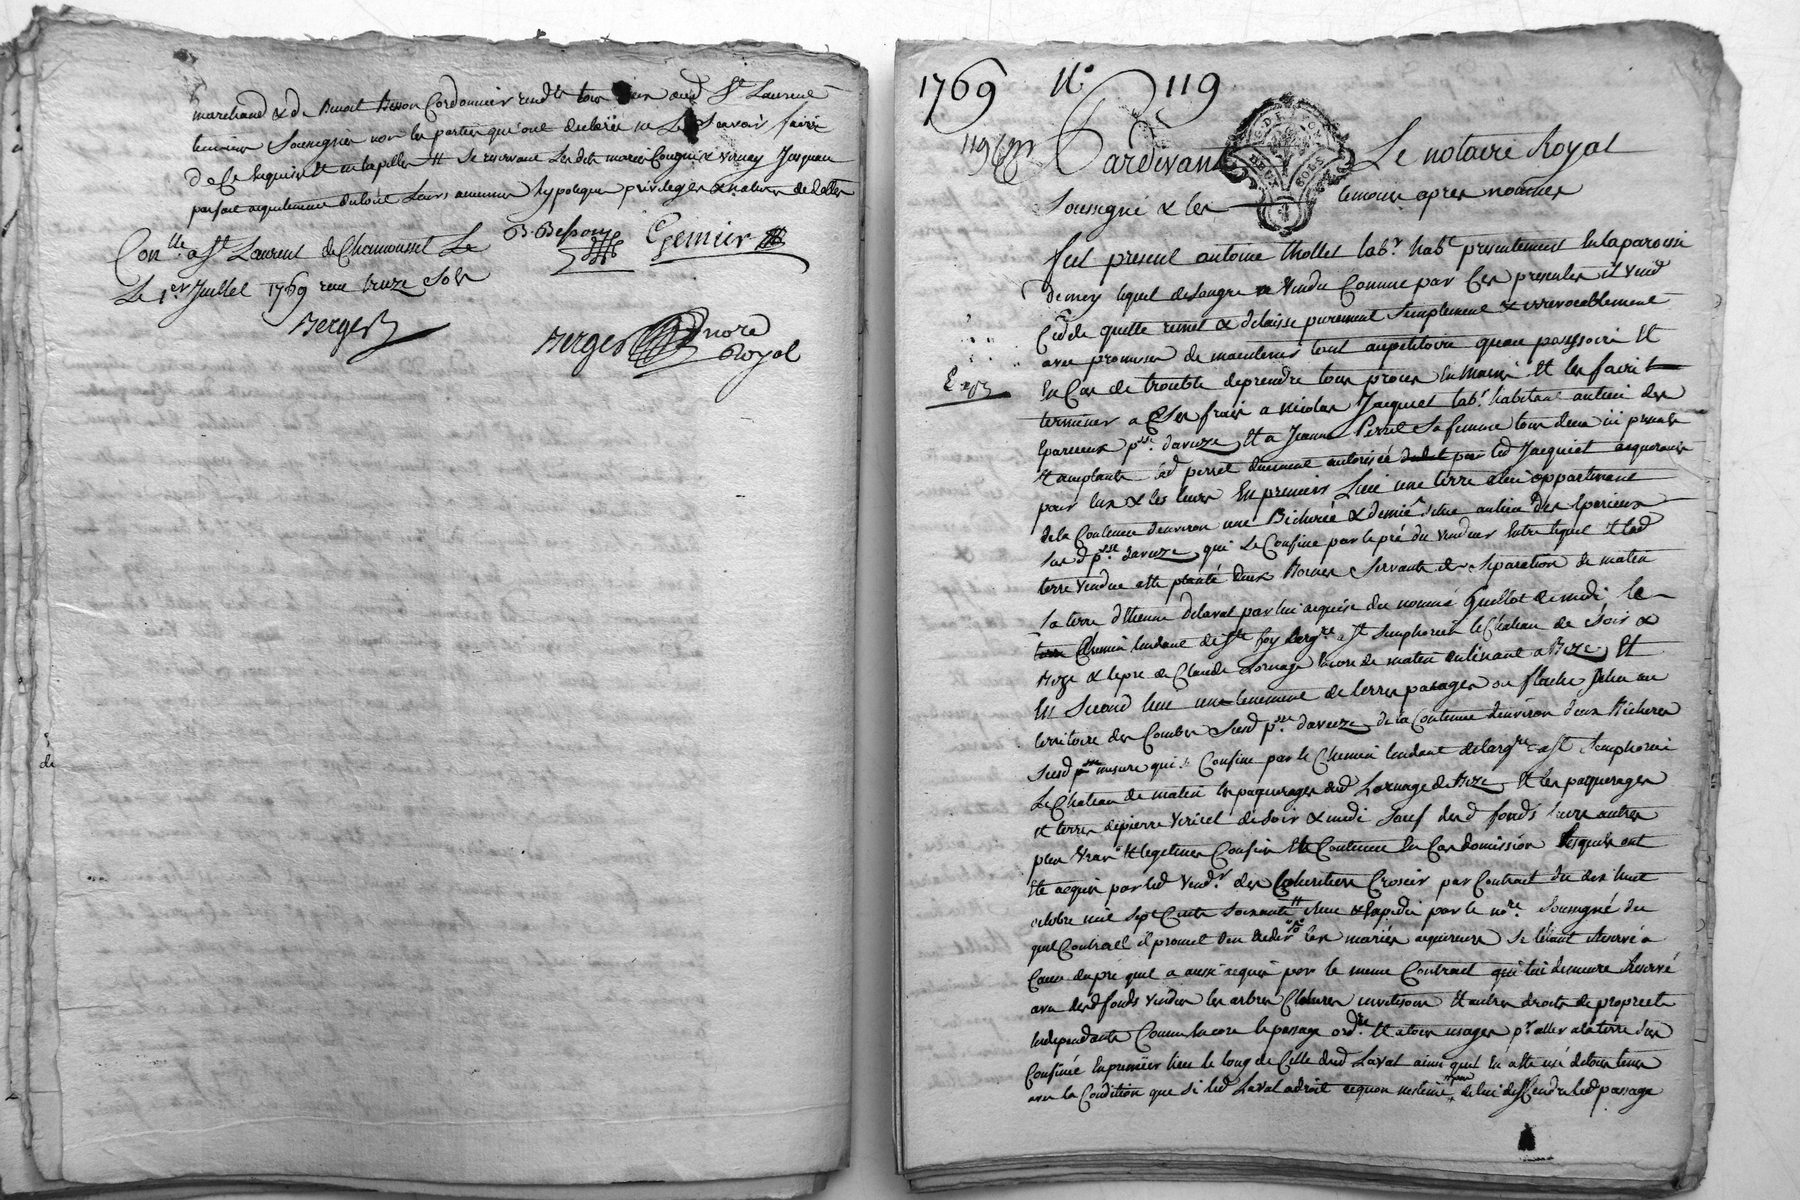 marchand & de Benoit Besson Cordonnier aud St Laurent
temoins Soussignés non les parties qui ont declaré ne le Scavoir faire
de ce Enquis Et interpellés Se reservant Lesdits mariés & verney Jusqu'au
parfait aquitement hypoteque privileges & nature de dettes
Con.lle a St Laurent de Chamousset Le
Le 1er Juillet 1769 reçu treze sols
B. Besson Grenier
Berger
Berger nore
Royal
1769 No 119
119
Pardevant Le notaire Royal
Soussigné & les temoins apres nommés
fut present antoine thollet lab.r hab.t presentement En la paroisse
demeys lequel de Son gré a Vendu Comme par Ces presentes il vend
Cede quitte remet & delaisse purement Simplement & irrevocablement
avec promesse de maintenir tant au petitoire quau possessoire Et
En Cas de trouble de prendre tous proces En main Et les faire
Exp.
terminer a Ses frais a nicolas Jacquet lab.r habitant au lieu des
Eparieux p.sse daveze Et a Jeanne Perret Sa femme tous deux ici presents
Et acceptants lad perret duement autorisée dud Jacquet acquereurs
pour Eux & les leurs En premier Lieu une terre a lui appartenant
de la Contenue denviron une Bicherée & demie Situé au lieu des Eparieux
Susd p.sse daveze qui Se Confine par le pré du vendeur Entre lequel Et lad
terre vendue a été planté deux Bornes Servants de Separation de matin
la terre dEtienne delaval par lui acquise du nommé Guillot de midi le
Chemin tendant de Ste foy Largre a St Simphorien le Chateau de Soir &
Bize & le pré de Claude Lornage Encore de matin declinant a Bize Et
En Second lieu un tenement de terres pasages ou flache Situé au
territoire des Combes Susd p.sse daveze de la Contenue denviron deux Bicherées
Susd mesure qui Se Confine par le Chemin tendant de Largre a St Simphorien
Le Chateau de matin les paquerages dud Lornage de Bize Et les paquerages
et terres de pierre Vericel de Soir & midi Sauf desd fonds leurs autres
plus vrais & legitimes Confins Et Contenue En Cas domission Lesquels ont
Eté acquis par led Vend.r des Coheritiers Crozier par Contrat du dix huit
octobre mil Sept Cents Soixante par le no.re Soussigné du
quel Contract il promet den aider les mariés acquereurs Se létant reservé a
Cause du pré quil a aussi acquis par le meme Contract qui lui demeure reservé
avec desd fonds vendus les arbres Clotures Et autres droits de proprieté
independante Comme Encore le passage ord.re Et a tous usages p.r aller a la terre
Confinée En premier lieu le long de Celle dud Laval ainsi quil En a été usé de tous tems
avec la Condition que Si led Laval de lui deffendre led passage